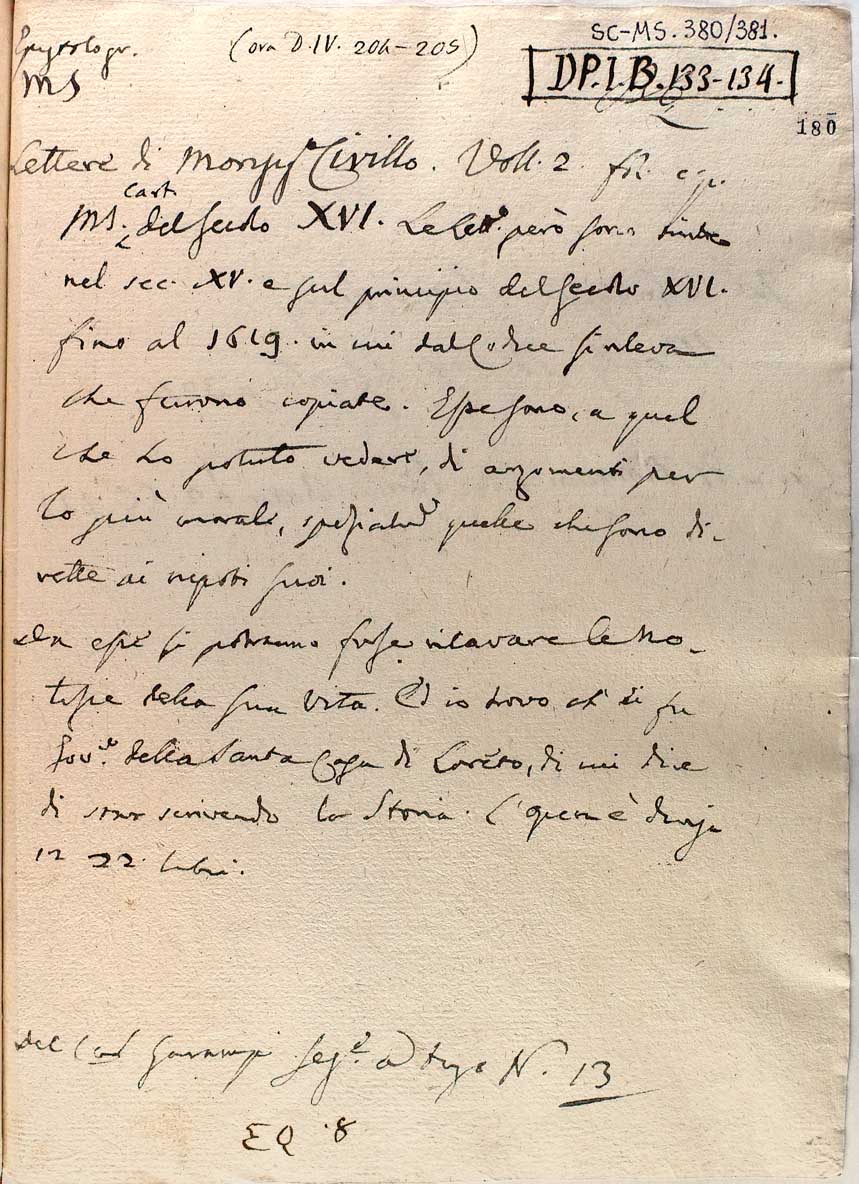 Epistologr.
MS
(ora D. IV. 204-205)
SC-MS. 380/381.
DP.I.B.133-134.
180
Lettere di Monsig.r Civillo. Voll. 2. fol.
Cart.
MS. del Secolo XVI. Le lett.e però sono
nel sec. XV. e sul principio del Secolo XVI.
fino al 1619. in cui dal Codice si rileva
che furono copiate. Esse sono, a quel
che ho potuto vedere, di argomenti per
lo più morali, spezialm.e quelle che sono di-
rette ai nipoti suoi.
Da esse si potranno forse ricavare le No-
tizie della sua Vita. Ed io trovo ch' ei fu
Gov.e della Santa Casa di Loreto, di cui dice
di star scrivendo la Storia. L'opera è divisa
in 22. libri.
del Card Garampi Seg.e N. 13
EQ. 8